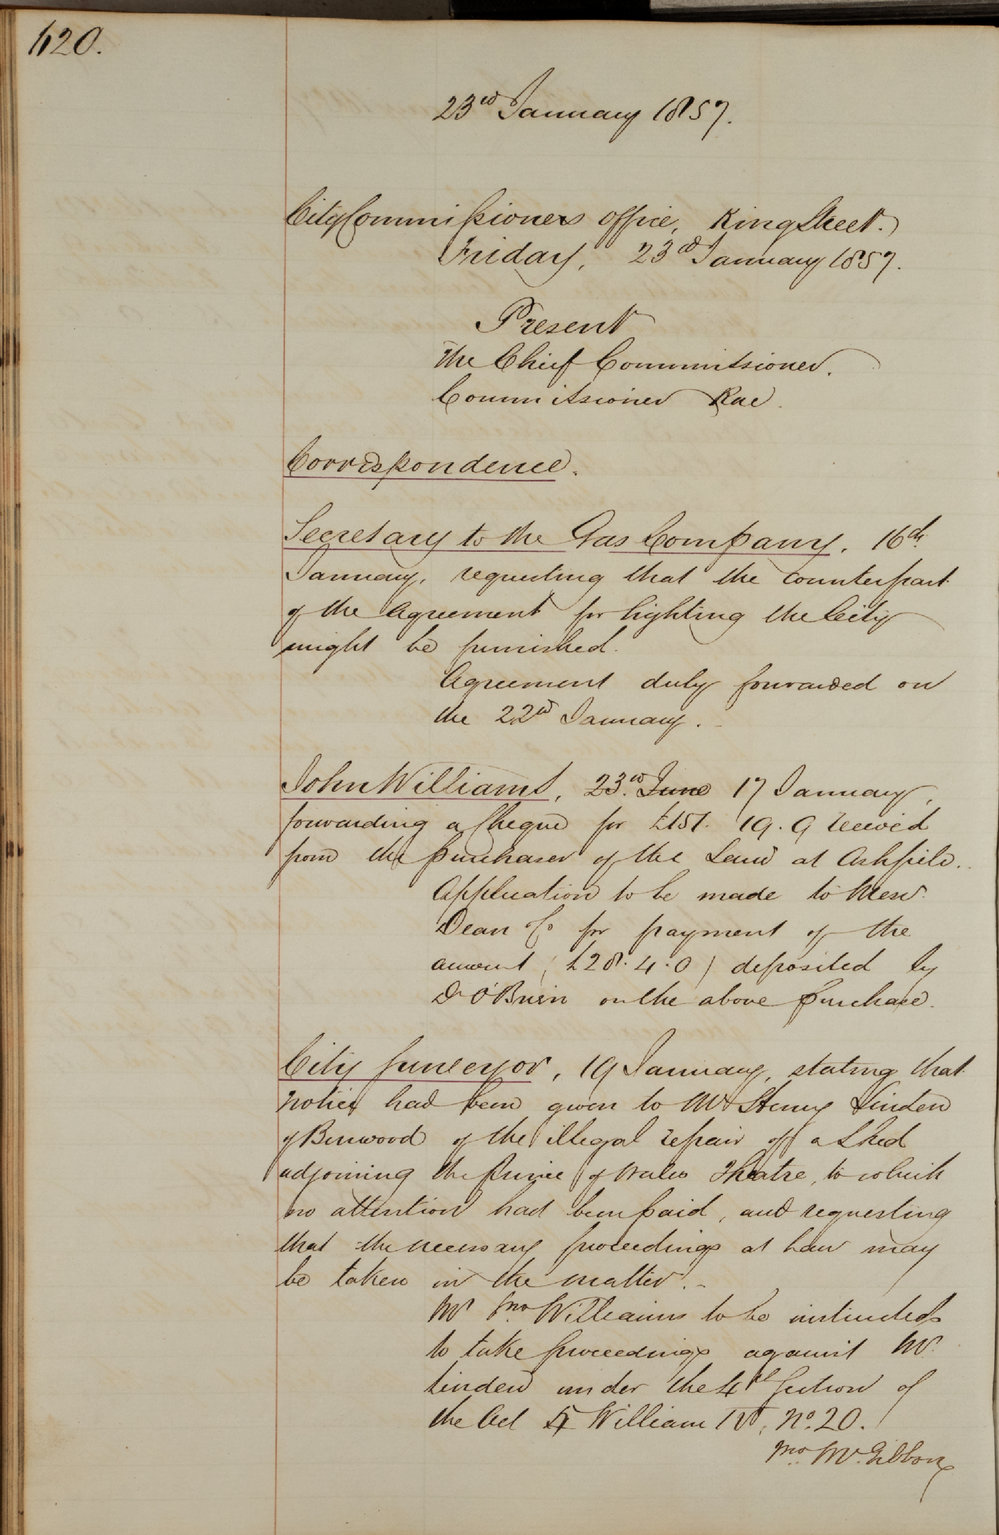 420.
23rd January 1857.
City Commissioners Office, King Street.
Friday, 23rd January 1857.
Present
The Chief Commissioner.
Commissioner Rae.
Correspondence.
Secretary to the Gas Company, 16th
January, requesting that the counterpart
of the Agreement for lighting the City
might be furnished.
Agreement duly forwarded on
the 22nd January.
John Williams, 23rd June 17 January,
forwarding a Cheque for £151. 19. 9 received
from the purchaser of the Land at Ashfield.
Application to be made to Messrs.
Dean & Co for payment of the
amount (£28. 4. 0) deposited by
Dr O'Brien on the above purchase.
City Surveyor, 19 January, stating that
notice had been given to Mr Henry Linden
of Burwood of the illegal repair of a Shed
adjoining the Prince of Wales Theatre, to which
no attention had been paid, and requesting
that the necessary proceedings at Law may
be taken in the matter.
Mr Jno Williams to be instructed
to take proceedings against Mr
Linden under the 4th Section of
the Act William IV, No. 20.
Jno McGibbon